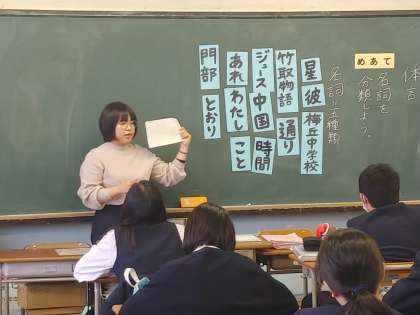 体言
めあて
名詞を
分類しよう。
名詞…五種類
星 彼 梅丘中学校
竹取物語 通り
ジュース 中国 時間
あれ わたし こと
門部 とおり